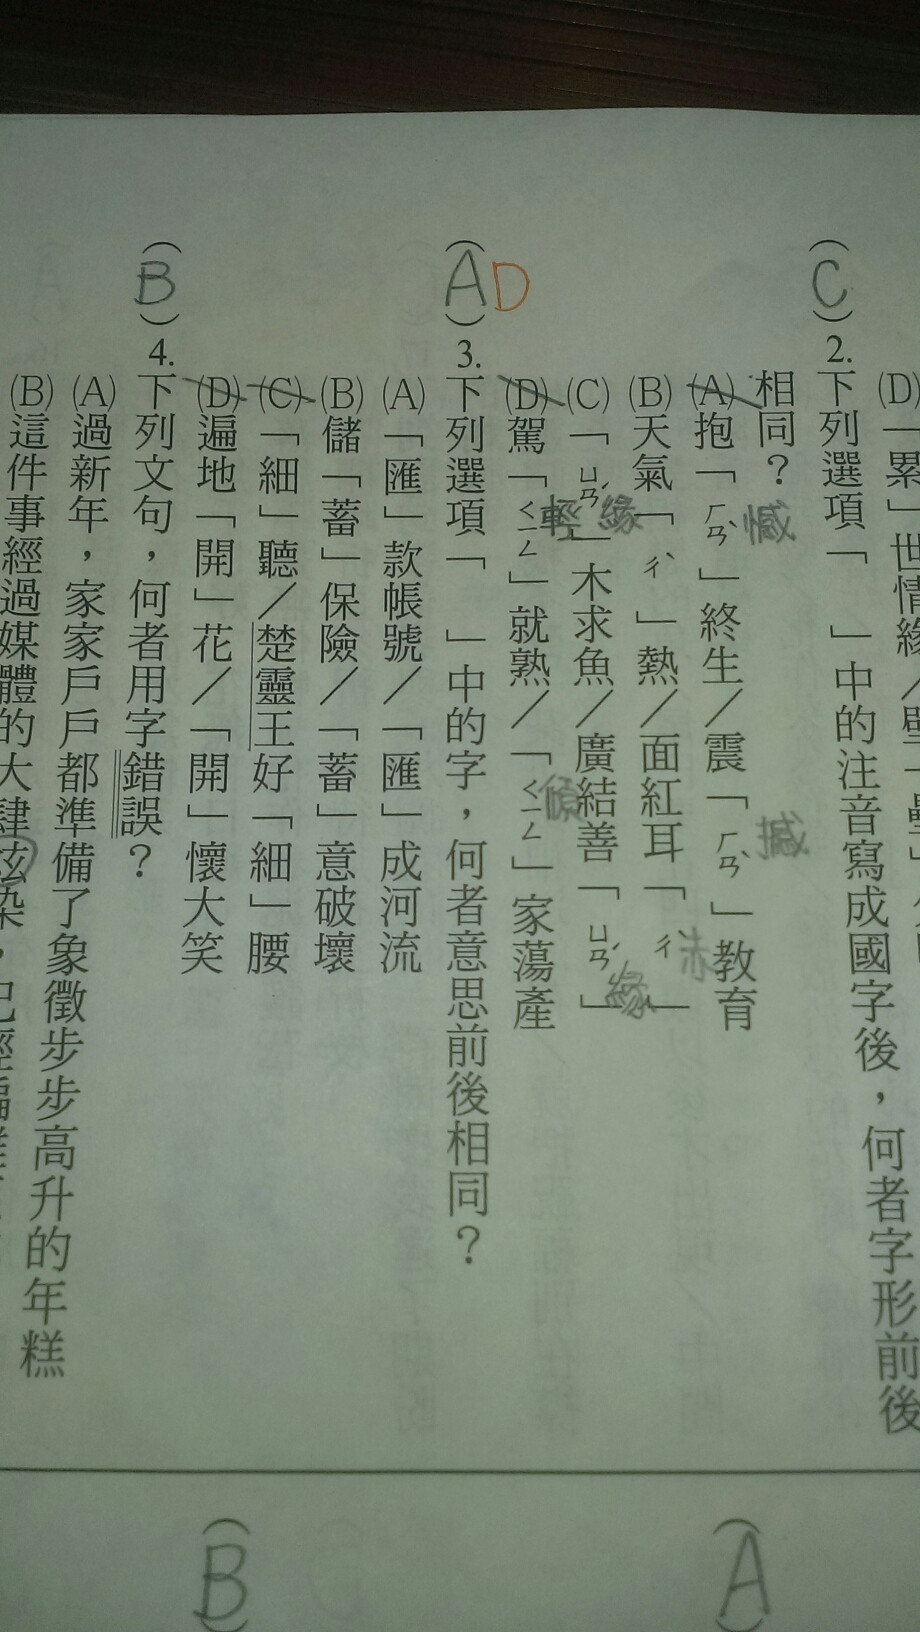 (D)「累」世情緣／壁「壘」分
(C) 2.下列選項「　」中的注音寫成國字後，何者字形前後
相同？
(A)抱「ㄏㄢˋ」終生／震「ㄏㄢˋ」教育
憾 撼
(B)天氣「ㄔˋ」熱／面紅耳「ㄔˋ」
赤
(C)「ㄩㄢˊ」木求魚／廣結善「ㄩㄢˊ」
緣 緣
(D)駕「ㄑㄧㄥ」就熟／「ㄑㄧㄥ」家蕩產
輕 傾
(A) D 3.下列選項「　」中的字，何者意思前後相同？
(A)「匯」款帳號／「匯」成河流
(B)儲「蓄」保險／「蓄」意破壞
(C)「細」聽／楚靈王好「細」腰
(D)遍地「開」花／「開」懷大笑
(B) 4.下列文句，何者用字錯誤？
(A)過新年，家家戶戶都準備了象徵步步高升的年糕
(B)這件事經過媒體的大肆炫染，已經
(A)
(B)